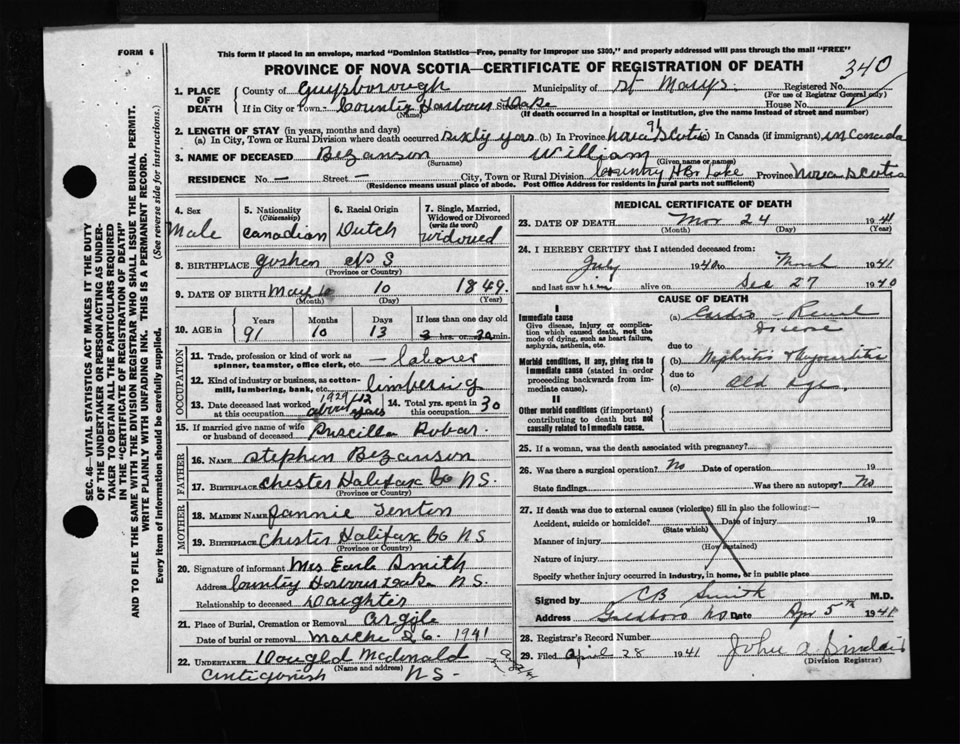 FORM 6
This form if placed in an envelope, marked "Dominion Statistics—Free, penalty for improper use $300," and properly addressed will pass through the mail "FREE"
PROVINCE OF NOVA SCOTIA—CERTIFICATE OF REGISTRATION OF DEATH
340
1. PLACE OF DEATH County of Guysborough Municipality of St Marys Registered No.
(For use of Registrar General only)
If in City or Town- Country Harbour Lake House No.
(Name) (If death occurred in a hospital or institution, give the name instead of street and number)
2. LENGTH OF STAY (in years, months and days)
(a) In City, Town or Rural Division where death occurred Sixty yrs. (b) In Province Nova Scotia 91 In Canada (if immigrant) in Canada
3. NAME OF DECEASED Bezanson William
(Surname) (Given name or names)
RESIDENCE No — Street — City, Town or Rural Division Country Hbr Lake Province Nova Scotia
(Residence means usual place of abode. Post Office Address for residents in rural parts not sufficient)
SEC. 46—VITAL STATISTICS ACT MAKES IT THE DUTY
OF THE UNDERTAKER OR PERSON ACTING AS UNDER-
TAKER TO OBTAIN ALL THE PARTICULARS REQUIRED
IN THE "CERTIFICATE OF REGISTRATION OF DEATH"
AND TO FILE THE SAME WITH THE DIVISION REGISTRAR WHO SHALL ISSUE THE BURIAL PERMIT.
WRITE PLAINLY WITH UNFADING INK. THIS IS A PERMANENT RECORD.
Every item of information should be carefully supplied. (See reverse side for instructions.)
4. Sex Male
5. Nationality (Citizenship) Canadian
6. Racial Origin Dutch
7. Single, Married, Widowed or Divorced (write the word) Widowed
8. BIRTHPLACE Goshen N S
(Province or Country)
9. DATE OF BIRTH May 10 1849
(Month) (Day) (Year)
10. AGE in Years 91 Months 10 Days 13 If less than one day old hrs. or min.
OCCUPATION
11. Trade, profession or kind of work as spinner, teamster, office clerk, etc. — laborer
12. Kind of industry or business, as cotton-mill, lumbering, bank, etc. limbering
13. Date deceased last worked at this occupation 1929 about 12 years 14. Total yrs. spent in this occupation 30
15. If married give name of wife or husband of deceased Priscilla Robar.
FATHER
16. NAME Stephen Bezanson
17. BIRTHPLACE Chester Halifax Co NS.
(Province or Country)
MOTHER
18. MAIDEN NAME
19. BIRTHPLACE Chester Halifax Co NS
(Province or Country)
20. Signature of informant Mrs Earle Smith
Address Country Harbour Lake N.S.
Relationship to deceased Daughter
21. Place of Burial, Cremation or Removal Argyle
Date of burial or removal Marche 26. 1941
22. UNDERTAKER Dougld Mcdonald
(Name and address)
Antigonish N S.
MEDICAL CERTIFICATE OF DEATH
23. DATE OF DEATH Mar 24 1941
(Month) (Day) (Year)
24. I HEREBY CERTIFY that I attended deceased from:
July 1940 to March 1941
and last saw him alive on Dec 27 1940
CAUSE OF DEATH
I
Immediate cause
Give disease, injury or complication which caused death, not the mode of dying, such as heart failure, asphyxia, asthenia, etc.
(a) Cardio - Renal Disease
due to
Morbid conditions, if any, giving rise to immediate cause (stated in order proceeding backwards from immediate cause).
(b) Nephritis & Myocarditis
due to
(c) Old Age
II
Other morbid conditions (if important) contributing to death but not causally related to immediate cause.
25. If a woman, was the death associated with pregnancy?
26. Was there a surgical operation? No Date of operation 19
State findings Was there an autopsy? No
27. If death was due to external causes (violence) fill in also the following:—
Accident, suicide or homicide? Date of injury 19
(State which)
Manner of injury
(How sustained)
Nature of injury
Specify whether injury occurred in industry, in home, or in public place
Signed by CB Smith M.D.
Address Goldboro NS Date Apr 5th 1941
28. Registrar's Record Number
29. Filed April 28 1941 John A Sinclair
(Division Registrar)